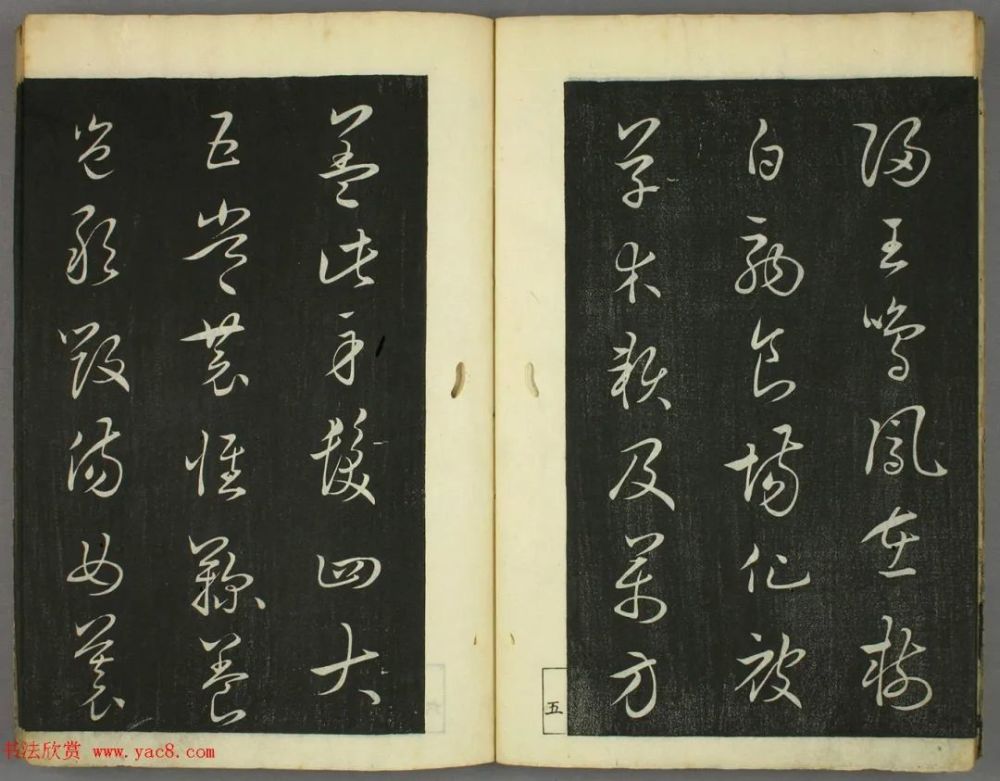 歸王鳴鳳在樹
白駒食場化被
草木賴及萬方
五
蓋此身髮四大
五常恭惟鞠養
豈敢毀傷女慕
书法欣赏 www.yac8.com